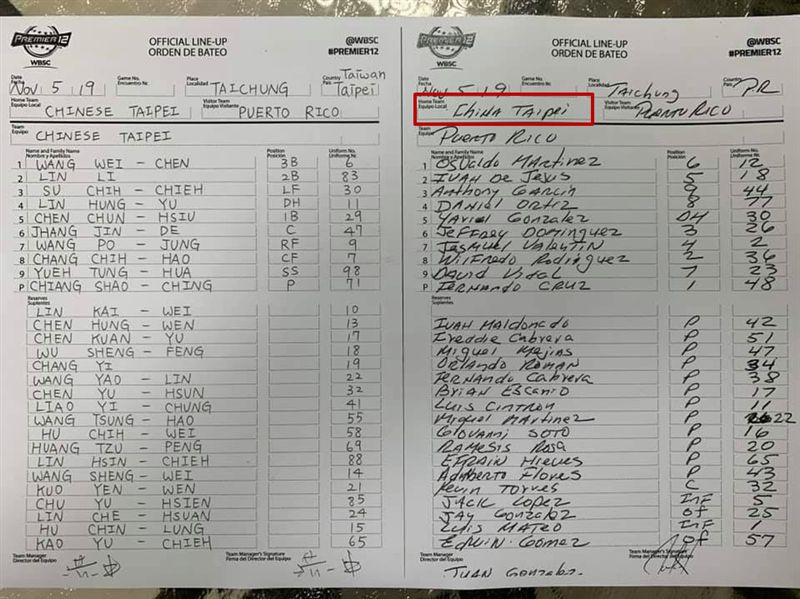 PREMIER 12
WBSC
OFFICIAL LINE-UP
ORDEN DE BATEO
@WBSC
#PREMIER12
Date
Fecha
Nov 5 19
Game No.
Encuentro Nr.
Place
Localidad
TAICHUNG
Country
País
Taiwan
Taipei
Home Team
Equipo Local
CHINESE TAIPEI
Visitor Team
Equipo Visitante
PUERTO RICO
Team
Equipo
CHINESE TAIPEI
Name and Family Name
Nombre y Apellidos
Position
Posición
Uniform No.
Uniforme Nr.
1 WANG WEI - CHEN 3B 6
2 LIN LI 2B 83
3 SU CHIH - CHIEH LF 30
4 LIN HUNG - YU DH 11
5 CHEN CHUN - HSIU 1B 29
6 JHANG JIN - DE C 47
7 WANG PO - JUNG RF 9
8 CHANG CHIH - HAO CF 7
9 YUEH TUNG - HUA SS 98
P CHIANG SHAO - CHING P 71
Reserves
Suplentes
LIN KAI - WEI 10
CHEN HUNG - WEN 13
CHEN KUAN - YU 17
WU SHENG - FENG 18
CHANG YI 19
WANG YAO - LIN 22
CHEN YU - HSUN 32
LIAO YI - CHUNG 41
WANG TSUNG - HAO 55
HU CHIH - WEI 58
HUANG TZU - PENG 69
LIN HSIN - CHIEH 88
WANG SHENG - WEI 14
KUO YEN - WEN 21
CHU YU - HSIEN 85
LIN CHE - HSUAN 24
HU CHIN - LUNG 15
KAO YU - CHIEH 65
Team Manager
Director del Equipo
Team Manager's Signature
Firma del Director del Equipo
PREMIER 12
WBSC
OFFICIAL LINE-UP
ORDEN DE BATEO
@WBSC
#PREMIER12
Date
Fecha
Nov 5 19
Game No.
Encuentro Nr.
Place
Localidad
Taichung
Country
País
PR
Home Team
Equipo Local
China Taipei
Visitor Team
Equipo Visitante
Puerto Rico
Team
Equipo
Puerto Rico
Name and Family Name
Nombre y Apellidos
Position
Posición
Uniform No.
Uniforme Nr.
1 Osvaldo Martinez 6 12
2 Ivan De Jesus 5 18
3 Anthony Garcia 9 44
4 Daniel Ortiz 8 77
5 Yariel Gonzalez DH 30
6 Jeffrey Dominguez 3 26
7 Jesmuel Valentin 4 2
8 Wilfredo Rodriguez 2 36
9 David Vidal 7 23
P Fernando Cruz 1 48
Reserves
Suplentes
Ivan Maldonado P 42
Freddie Cabrera P 51
Miguel Mejias P 47
Orlando Roman P 34
Fernando Cabrera P 38
Brian Escanio P 17
Luis Cintron P 11
Miguel Martinez P 22
Giovanni Soto P 16
Ramesis Rosa P 20
Efrain Nieves P 65
Adalberto Flores P 43
Kevin Torres C 32
Jack Lopez Inf 5
Jay Gonzalez of 25
Luis Mateo Inf 1
Edwin Gomez of 57
Team Manager
Director del Equipo
Juan Gonzalez
Team Manager's Signature
Firma del Director del Equipo